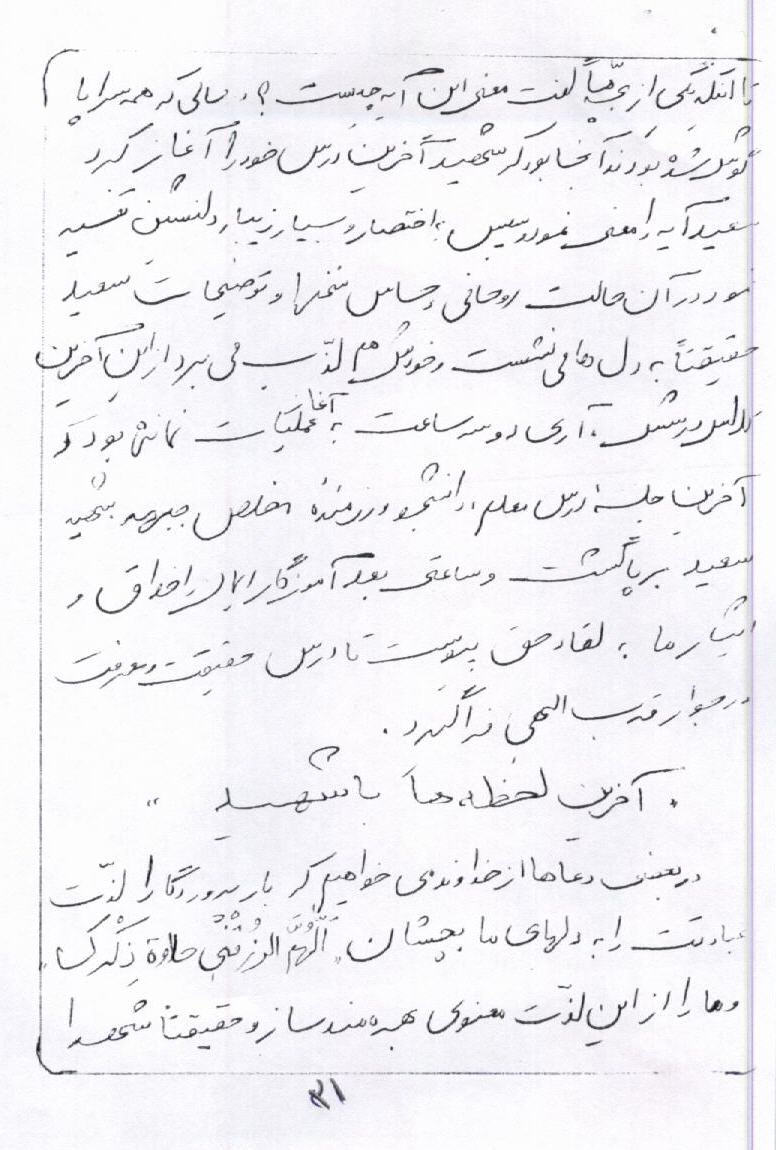 تا اینکه یکی از بچه‌ها گفت معنی این آیه چیست؟ در حالی که همه سراپا
گوش شده بودند آنجا بود که شهید آخرین درس خود را آغاز کرد
سعید آیه را معنی نمود و سپس به اختصار و بسیار زیبا و دلنشین تفسیر
نمود در آن حالت روحانی و حساس سخنها و توضیحات سعید
حقیقتاً به دل ها می نشست و خودش هم لذت می برد از این آخرین
کلاس درسش، آری دو سه ساعت به آغاز عملیات نمانده بود که
آخرین جلسه درس معلم، دانشجو و رزمنده مخلص جبهه شهید
سعید برپا گشت و ساعتی بعد آموزگار ایمان، اخلاق و
ایثار ما به لقاء حق پیوست تا درس حقیقت و معرفت
در جوار قرب الهی فرا گیرد.
" آخرین لحظه ها با شهید "
در بعضی دعاها از خداوند می خواهیم که بار پروردگارا لذّت
عبادتت را به دلهای ما بچشان "اَللّهُمَّ ارْزُقْنی حلاوة ذِکْرِکَ"
و ما را از این لذّت معنوی بهره مند ساز و حقیقتاً شهدا
۳۱